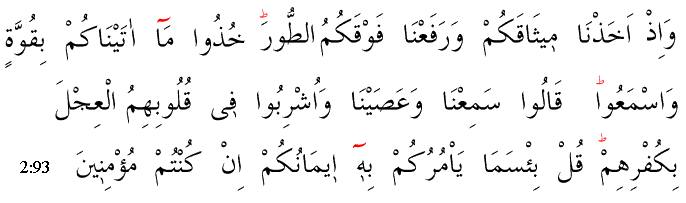 وَاِذْ اَخَذْنَا مٖيثَاقَكُمْ وَرَفَعْنَا فَوْقَكُمُ الطُّورَؕ خُذُوا مَٓا اٰتَيْنَاكُمْ بِقُوَّةٍ
وَاسْمَعُواؕ قَالُوا سَمِعْنَا وَعَصَيْنَا وَاُشْرِبُوا فٖى قُلُوبِهِمُ الْعِجْلَ
بِكُفْرِهِمْؕ قُلْ بِئْسَمَا يَاْمُرُكُمْ بِهٖٓ اٖيمَانُكُمْ اِنْ كُنْتُمْ مُؤْمِنٖينَ 2:93